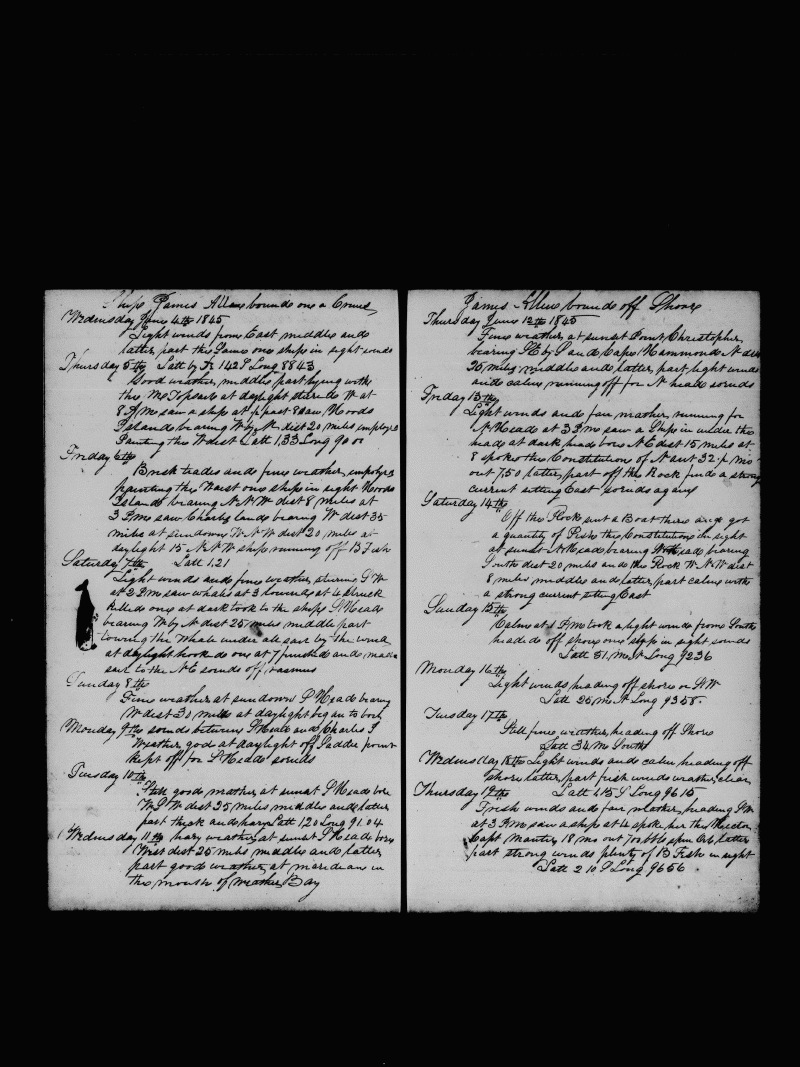 Ship James Allen bound on a Cruise
Wednesday June 4th 1845
Light winds from East middle and
latter part the Same one ship in sight sounds
Thursday 5th Latt by 142 S Long 8843
Good weather, middle part lying with
the M Topsails at daylight steered W at
8 AM saw a ship at ½ past 8 saw Hoods
Island bearing W by N dist 20 miles employed
Painting the Waist Latt 1,33 Long 90 00
Friday 6th
Brisk trades and fine weather, employed
painting the Waist one ship in sight Hoods
Island bearing N N W dist 8 miles at
3 P.M saw Charles land bearing W dist 35
miles at sundown W N W dist 20 miles at
daylight 15 N N W ship running off B Fish
Saturday 7th Latt 1.21
Light winds and fine weather, steering S W
at 2 PM saw whales at 3 lowered at 4 struck
killed one at dark took to the ship S Head
bearing W by N dist 25 miles middle part
towing the Whale under all sail by the wind
at daylight hook on at 7 finished and made
sail to the N E sounds off
Sunday 8th
Fine weather at sundown S Head bearing
W dist 30 miles at daylight began to boil
Monday 9th sounds between S Head and Charles I
Weather good at daylight off Saddle point
kept off for S Head sounds
Tuesday 10th
Still good weather, at sunset S Head bore
W S W dist 25 miles middle and latter
part thick and hazy Latt 1,20 Long 91.04
Wednesday 11th hazy weather, at sunset S Head bore
West dist 25 miles, middle and latter
part good weather, at meridean in
the mouth of weather Bay
James Allen bound off Shore
Thursday June 12th 1845
Fine weather at sunset Point Christopher
bearing SE by S and Cape Hammond N dist
25 miles middle and latter part light winds
and calms running off for N head sounds
Friday 13th
Light winds and fair weather, running for
N Head at 3 PM saw a Ship in under the
head at dark head bore N E dist 15 miles at
8 spoke the Constitution of Nant 32 mo
out 750 latter part off the Rock find a strong
current setting East sounds again
Saturday 14th
Off the Rock sent a Boat there and got
a quantity of Fish the Constitution in sight
at sunset N Head bearing
South dist 20 miles and the Rock W N W dist
8 miles middle and latter, part calms with
a strong current setting East
Sunday 15th
Calms at 1 PM took a light wind from South
headed off shore one ship in sight sounds
Latt 51 M N Long 9236
Monday 16th
Light winds heading off shore
Latt 26 M N Long 9358.
Tuesday 17th
Still fine weather, heading off Shore
Latt 34 M South
Wednesday 18th Light winds and calm heading off
shore latter part fresh winds weather clear
Thursday 19th Latt 1.15 S Long 9615
Fresh winds and fair weather, heading SW
at 3 PM saw a ship at 4 spoke her the Hector
Capt Manter 18 mo out 700 bbls spm Oil, latter
part strong winds plenty of B Fish in sight
Latt 2 10 S Long 9656